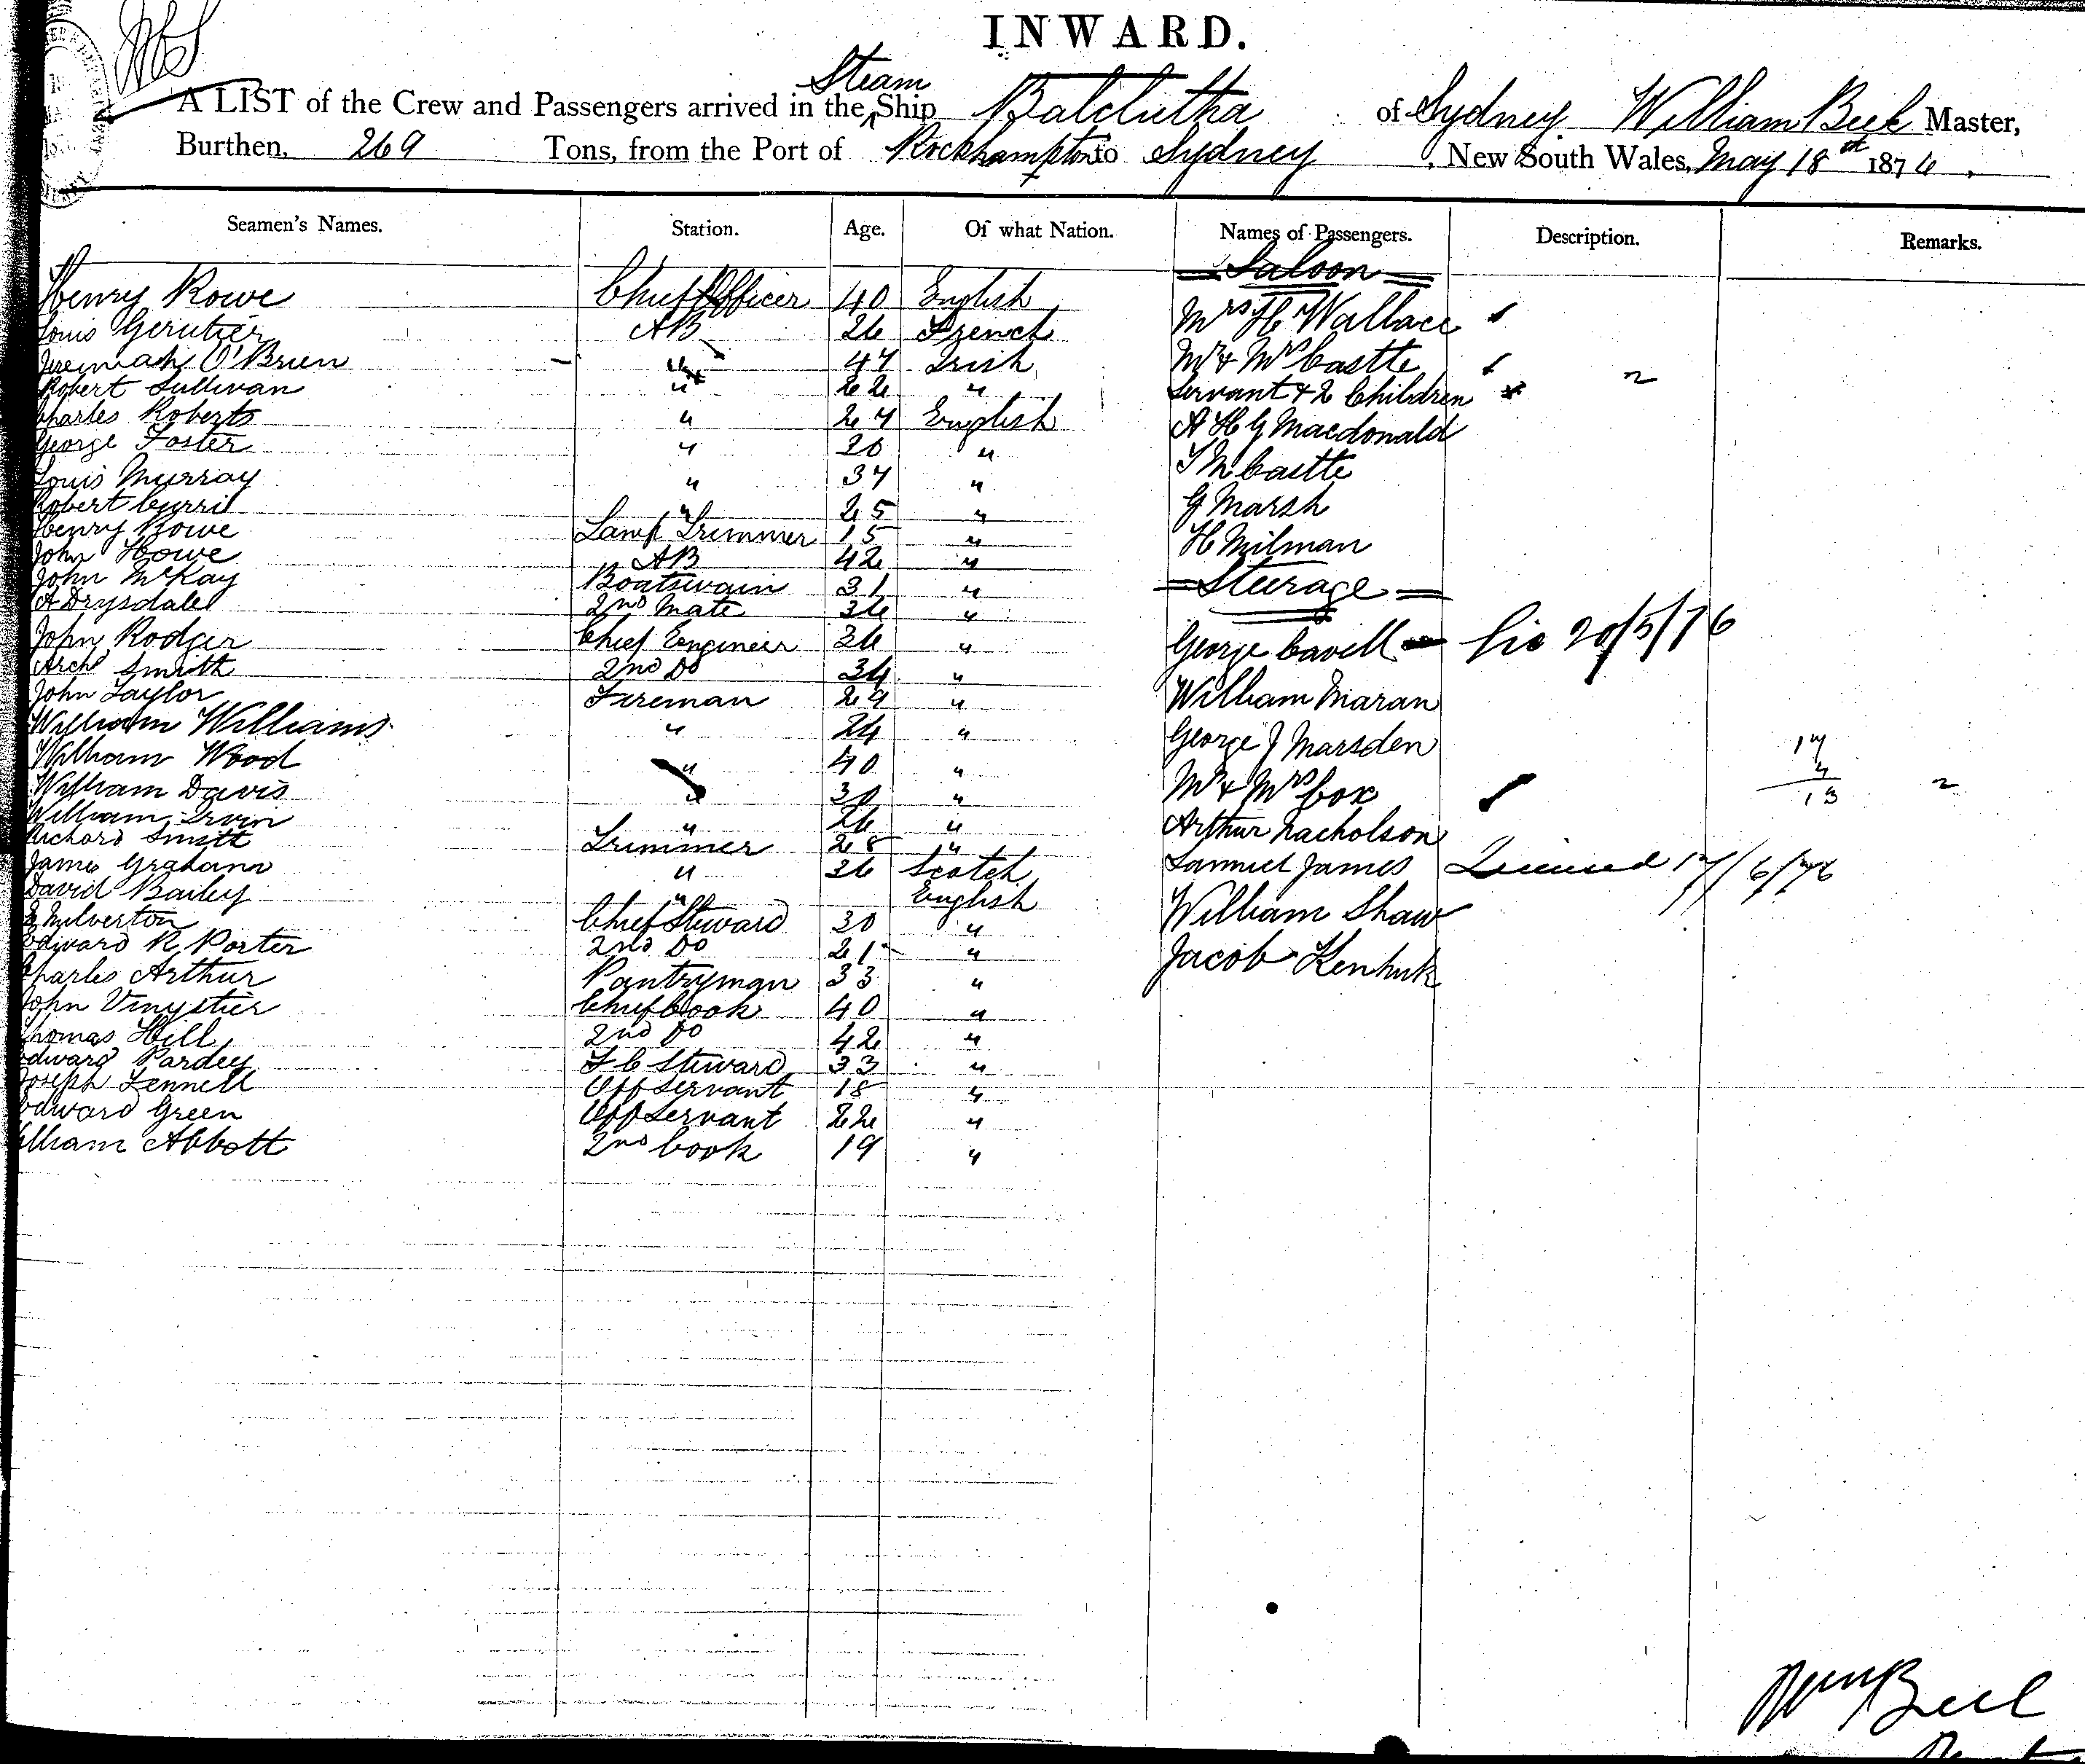 INWARD.
Steam
A LIST of the Crew and Passengers arrived in the Ship Balclutha of Sydney William Beek Master,
Burthen, 269 Tons, from the Port of Rockhampton to Sydney, New South Wales, May 18th 1876.
Seamen's Names. Station. Age. Of what Nation. Names of Passengers. Description. Remarks.
Saloon
Henry Rowe Chief Officer 40 English Mrs H Wallace
Louis AB 26 French
Jeremiah O'Brien " 47 Irish Mr & Mrs Castle
Robert Sullivan " 22 " Servant & 2 Children
Charles Roberts " 27 English A H G Macdonald
George Foster " 20 "
Louis Murray " 37 " Castle
Robert " 25 " G Marsh
Henry Rowe Lamp Trimmer 15 "
John Howe AB 42 " H Milman
John McKay Boatswain 31 " Steerage
A Drysdale 2nd Mate 36 "
John Rodger Chief Engineer 26 " George Cavill 20/5/76
Archd Smith 2nd Do 34 "
John Taylor Fireman 29 " William Maran
William Williams " 24 " George J Marsden 17
William Wood " 40 " 4
William Davis " 30 " Mr & Mrs Cox 13
William Irvin " 26 " Arthur Nacholson
Richard Smith Trimmer 28 "
James Graham " 26 Scotch Samuel James 17/6/76
David Bailey " English
Milverton Chief Steward 30 " William Shaw
Edward R Porter 2nd Do 21 "
Charles Arthur Pantryman 33 " Jacob
John Chief Cook 40 "
Thomas Hill 2nd Do 42 "
Edward Pardey F C Steward 33 "
Joseph Fennell Off Servant 18 "
Edward Green Off Servant 22 "
William Abbott 2nd Cook 19 "
Wm Beek